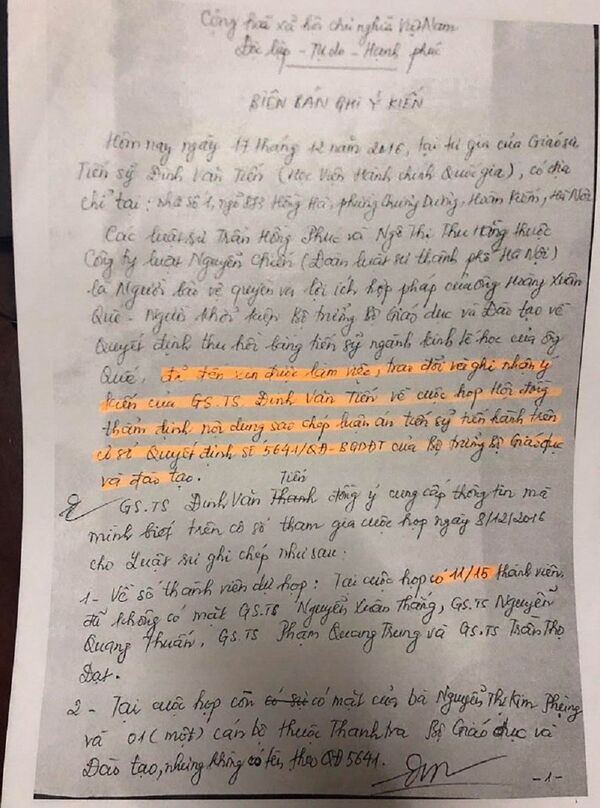 Cộng hoà xã hội chủ nghĩa Việt Nam
Độc lập - Tự do - Hạnh phúc
BIÊN BẢN GHI Ý KIẾN
Hôm nay ngày 17 tháng 12 năm 2016, tại tư gia của Giáo sư
Tiến sỹ Đinh Văn Tiến (Học viện Hành chính Quốc gia), có địa
chỉ tại: nhà số 1, ngõ Hồng Hà, phường Chương Dương, Hoàn Kiếm, Hà Nội
Các luật sư Trần Hồng Phúc và Ngô Thị Thu Hằng thuộc
Công ty luật Nguyễn Chiến (Đoàn luật sư thành phố Hà Nội)
là Người bảo vệ quyền và lợi ích hợp pháp của ông Hoàng Xuân
Quế - Người khởi kiện Bộ trưởng Bộ Giáo dục và Đào tạo về
Quyết định thu hồi bằng tiến sỹ ngành kinh tế học của ông
Quế, đã đến xin được làm việc, trao đổi và ghi nhận ý
kiến của GS.TS Đinh Văn Tiến về cuộc họp Hội đồng
thẩm định nội dung sao chép luận án tiến sỹ tiến hành trên
cơ sở Quyết định số 5641/QĐ-BGDĐT của Bộ trưởng Bộ Giáo dục
và đào tạo.
Tiến
GS.TS Đinh Văn Thanh đồng ý cung cấp thông tin mà
mình biết trên cơ sở tham gia cuộc họp ngày 8/12/2016
cho Luật sư ghi chép như sau:
1- Về số thành viên dự họp: Tại cuộc họp có 11/15 thành viên.
đã không có mặt GS.TS Nguyễn Xuân Thắng, GS.TS Nguyễn
Quang Thuấn, GS.TS Phạm Quang Trung và GS.TS Trần Thọ
Đạt.
2- Tại cuộc họp còn có sự có mặt của bà Nguyễn Thị Kim Phụng
và 01 (một) cán bộ thuộc Thanh tra Bộ Giáo dục và
Đào tạo, nhưng không có tên theo QĐ 5641.
-1-